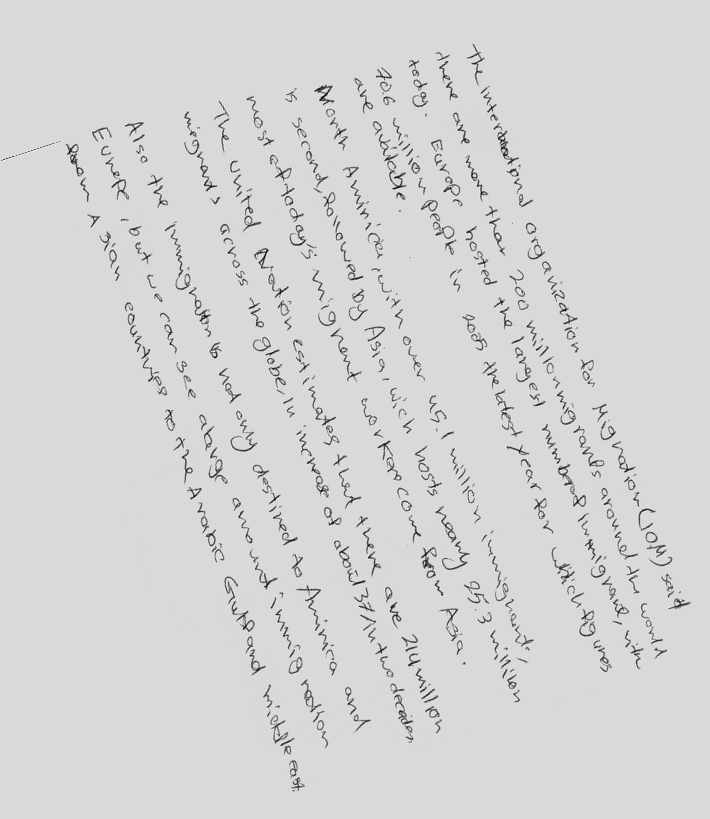 The International organization for Mignation (IOM) said
there are more that 200 million migrants around the would
today. Europe hosted the largest number of immigrant, with
70.6 million people in 2005 the latest year for which figures
are available.
North Aminica, with over 45.1 million immigrants,
is second, followed by Asia, wich hosts nearly 25.3 million
most of today's mignent worker come from Asia.
The united Nation estimates that there are 214 million
mignants across the globe, in increase of about 37% in two decades.
Also the immignation is not only destined to Aminica and
Europe, but we can see a large amount immignation
from Asian countries to the Arabic Gulf and middle east.